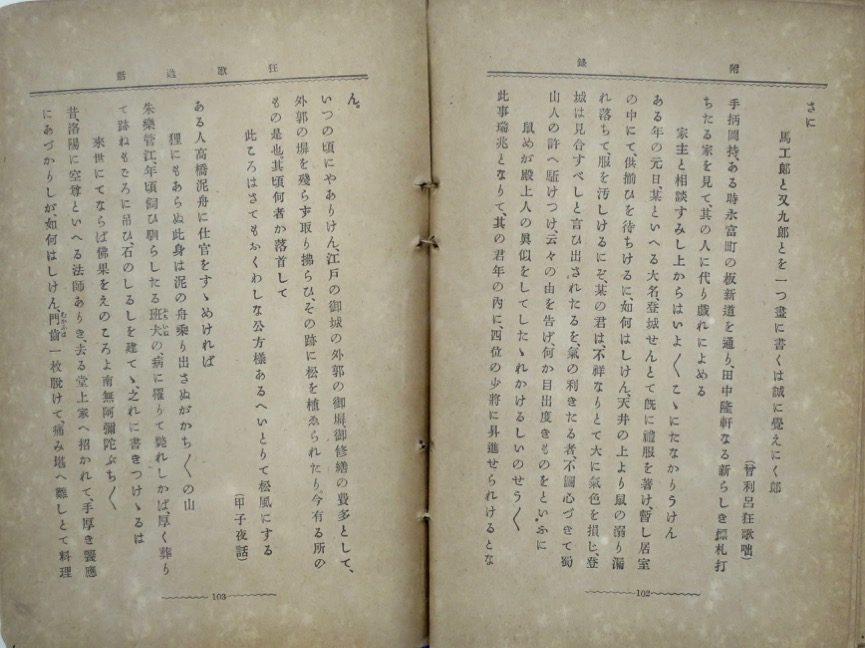 附錄
さに
馬工郎と又九郎とを一つ盡に書くは誠に覺えにく郎
(曾利呂狂歌咄)
手柄岡持、ある時永富町の板新道を通り、田中隆軒なる新らしき標札打
ちたる家を見て、其の人に代り戯れによめる
家主と相談すみし上からはいよ〳〵こゝにたなかりうけん
ある年の元日、某といへる大名、登城せんとて旣に禮服を著け、暫し居室
の中にて、供揃ひを待ちけるに、如何はしけん、天井の上より鼠の溺り漏
れ落ちて、服を汚しけるにぞ、某の君は、不祥なりとて大に氣色を損じ、登
城は見合すべしと言ひ出されたるを、氣の利きたる者、不圖心づきて蜀
山人の許へ駈けつけ、云々の由を告げ、何か目出度きものをといふに
鼠めが殿上人の眞似をしてしたゝれかけるしいのせう〳〵
此事瑞兆となりて、其の君年の內に、四位の少將に昇進せられけるとな
102
狂歌逸話
ん。
いつの頃にやありけん、江戸の御城の外郭の御塀、御修繕の費多として、
外郭の塀を殘らず取り拂らひ、その跡に松を植ゑられたり、今有る所の
もの是也。其頃何者か落首して
此ころはさてもおくわしな公方樣あるへいとりて松風にする
(甲子夜話)
ある人高橋泥舟に仕官をすゝめければ
狸にもあらぬ此身は泥の舟乘り出さぬがかち〳〵の山
朱樂管江、年頃飼ひ馴らしたる班犬の、病に罹りて斃れしかば、厚く葬り
て跡ねもごろに吊ひ、石のしるしを建てゝ、之れに書きつけゝるは
來世にてならば佛果をえのころよ南無阿彌陀ぶち〳〵
昔洛陽に空尊といへる法師ありき、去る堂上家へ招かれて、手厚き饗應
にあづかりしが、如何はしけん、門齒一枚脫けて、痛み堪へ難しとて料理
103